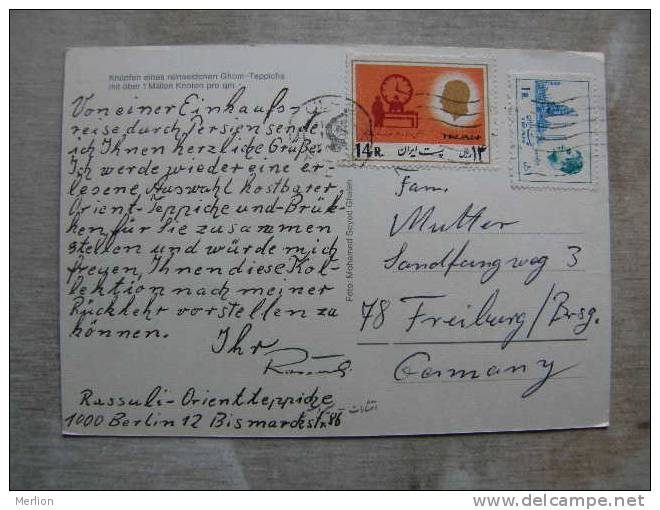 Knüpfen eines reinseidenen Ghom-Teppichs
mit über 1 Million Knoten pro qm.
Von einer Einkaufs-
reise durch Persien sende
ich Ihnen herzliche Grüße.
Ich werde wieder eine er-
lesene Auswahl kostbarer
Orient-Teppiche und -Brük-
ken für Sie zusammen
stellen und würde mich
freuen, Ihnen diese Kol-
lektion nach meiner
Rückkehr vorstellen zu
können.
Ihr
Rassuli-Orientteppiche
1000 Berlin 12 Bismarckstr. 86
Foto: Mohamed Seyed Ghaleh
14 R. پست ایران ۱۴ ریال
1 R.
Fam.
Mutter
Sandfangweg 3
78 Freiburg/Brsg.
Germany
Merlion
www.delcampe.net